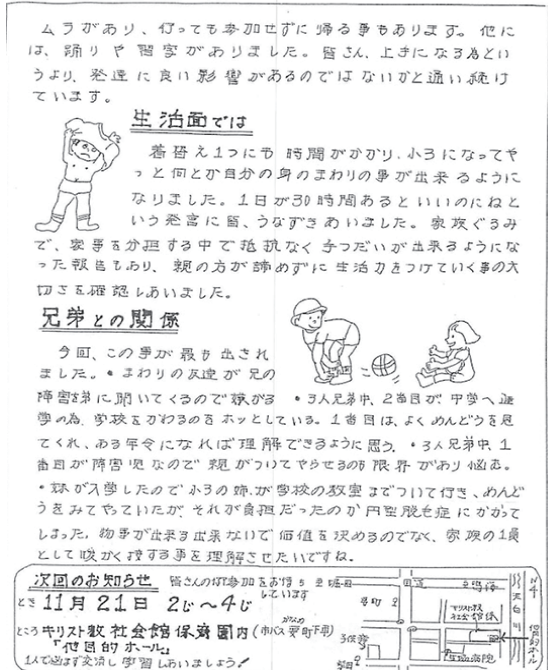 ムラがあり、行っても参加せずに帰る事もあります。他に
は、踊りや習字がありました。皆さん、上手になる為とい
うより、発達に良い影響があるのではないかと通い続け
ています。
生活面では
着替え1つにも時間がかかり、小3になってや
っと何とか自分の身のまわりの事が出来るように
なりました。1日が30時間あるといいのにねと
いう発言に皆、うなずきあいました。家族ぐるみ
で、家事を分担する中で抵抗なく手つだいが出来るようにな
った報告もあり、親の方が諦めずに生活力をつけていく事の大
切さを確認しあいました。
兄弟との関係
今回、この事が最も出され
ました。・まわりの友達が兄の
障害を弟に聞いてくるので嫌がる ・3人兄弟中、2番目が中学へ進
学の為、学校をかわるのをホッとしている。1番目は、よくめんどうを見
てくれ、ある年令になれば理解できるように思う。・3人兄弟中、1
番目が障害児なので親がついてやらせるのも限界があり悩む。
・妹が入学したので小3の姉が学校の教室までついて行き、めんど
うをみてやっていたが、それが負担だったのか円型脱毛症にかかって
しまった。物事が出来る出来ないで価値を決めるのでなく、家族の1員
として暖かく接する事を理解させたいですね。
次回のお知らせ 皆さんの御参加をお待ち
しています
とき 11月21日 2じ〜4じ
ところ キリスト教社会館保育園内(市バス 下車)
「他目的ホール」
1人で悩まず交流し学習しあいましょう!
国道
キリスト教
社会館保育園
N4